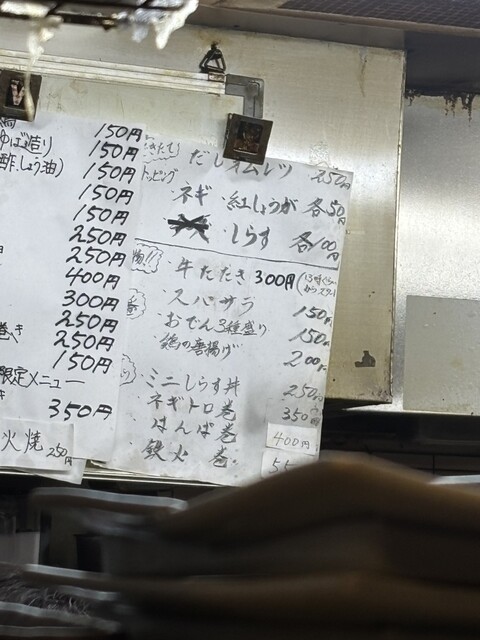 150円
ゆば造り 150円
酢.しょう油) 150円
150円
150円
250円
250円
400円
300円
巻き 250円
250円
150円
限定メニュー
350円
火焼 250円
だしオムレツ 250円
トッピング
・ネギ ・紅しょうが 各50円
・しらす 各100円
・牛たたき 300円
・スパサラ 150円
・おでん3種盛り 150円
・鶏の唐揚げ 200円
・ミニしらす丼 250円
・ネギトロ巻 350円
・はんぱ巻 400円
・鉄火巻 55